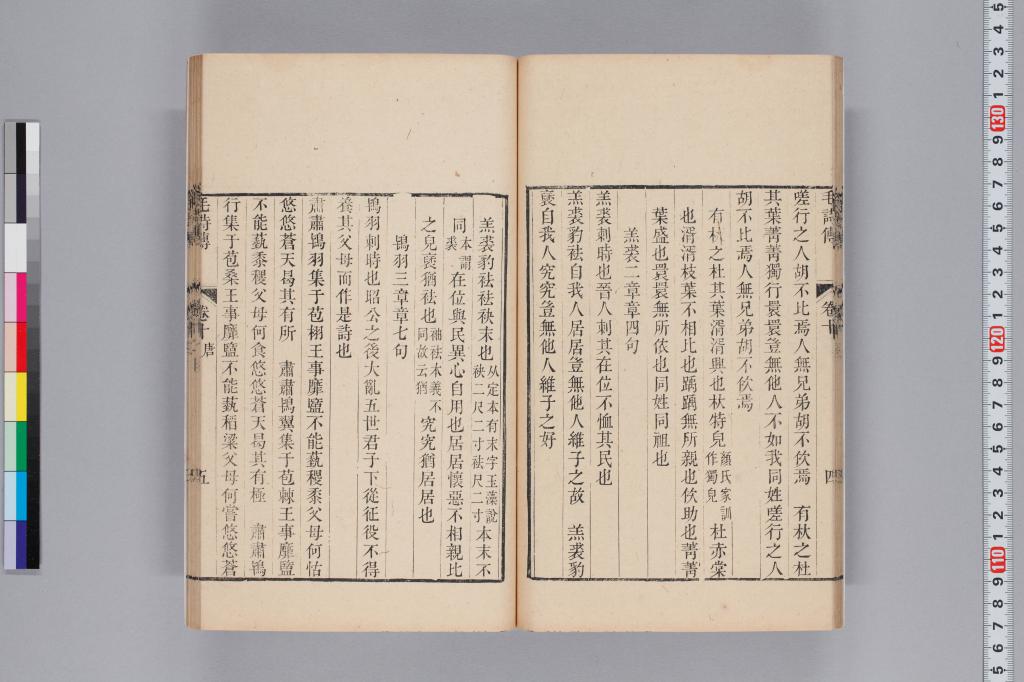 毛詩傳
卷十
四
嗟行之人胡不比焉人無兄弟胡不佽焉　有杕之杜
其葉菁菁獨行睘睘豈無他人不如我同姓嗟行之人
胡不比焉人無兄弟胡不佽焉
有杕之杜其葉湑湑興也杕特皃顏氏家訓作獨皃杜赤棠
也湑湑枝葉不相比也踽踽無所親也佽助也菁菁
葉盛也睘睘無所依也同姓同祖也
羔裘二章章四句
羔裘刺時也晉人刺其在位不恤其民也
羔裘豹袪自我人居居豈無他人維子之故　羔裘豹
褎自我人究究豈無他人維子之好
羔裘豹袪袪袂末也从定本有末字玉藻說袂二尺二寸袪尺二寸本末不
同本謂裘在位與民異心自用也居居懷惡不相親比
之皃褎猶袪也袖袪本義不同故云猶究究猶居居也
鴇羽三章章七句
鴇羽刺時也昭公之後大亂五世君子下從征役不得
養其父母而作是詩也
肅肅鴇羽集于苞栩王事靡盬不能蓺稷黍父母何怙
悠悠蒼天曷其有所　肅肅鴇翼集于苞棘王事靡盬
不能蓺黍稷父母何食悠悠蒼天曷其有極　肅肅鴇
行集于苞桑王事靡盬不能蓺稻粱父母何嘗悠悠蒼
毛詩傳
卷十
唐
五